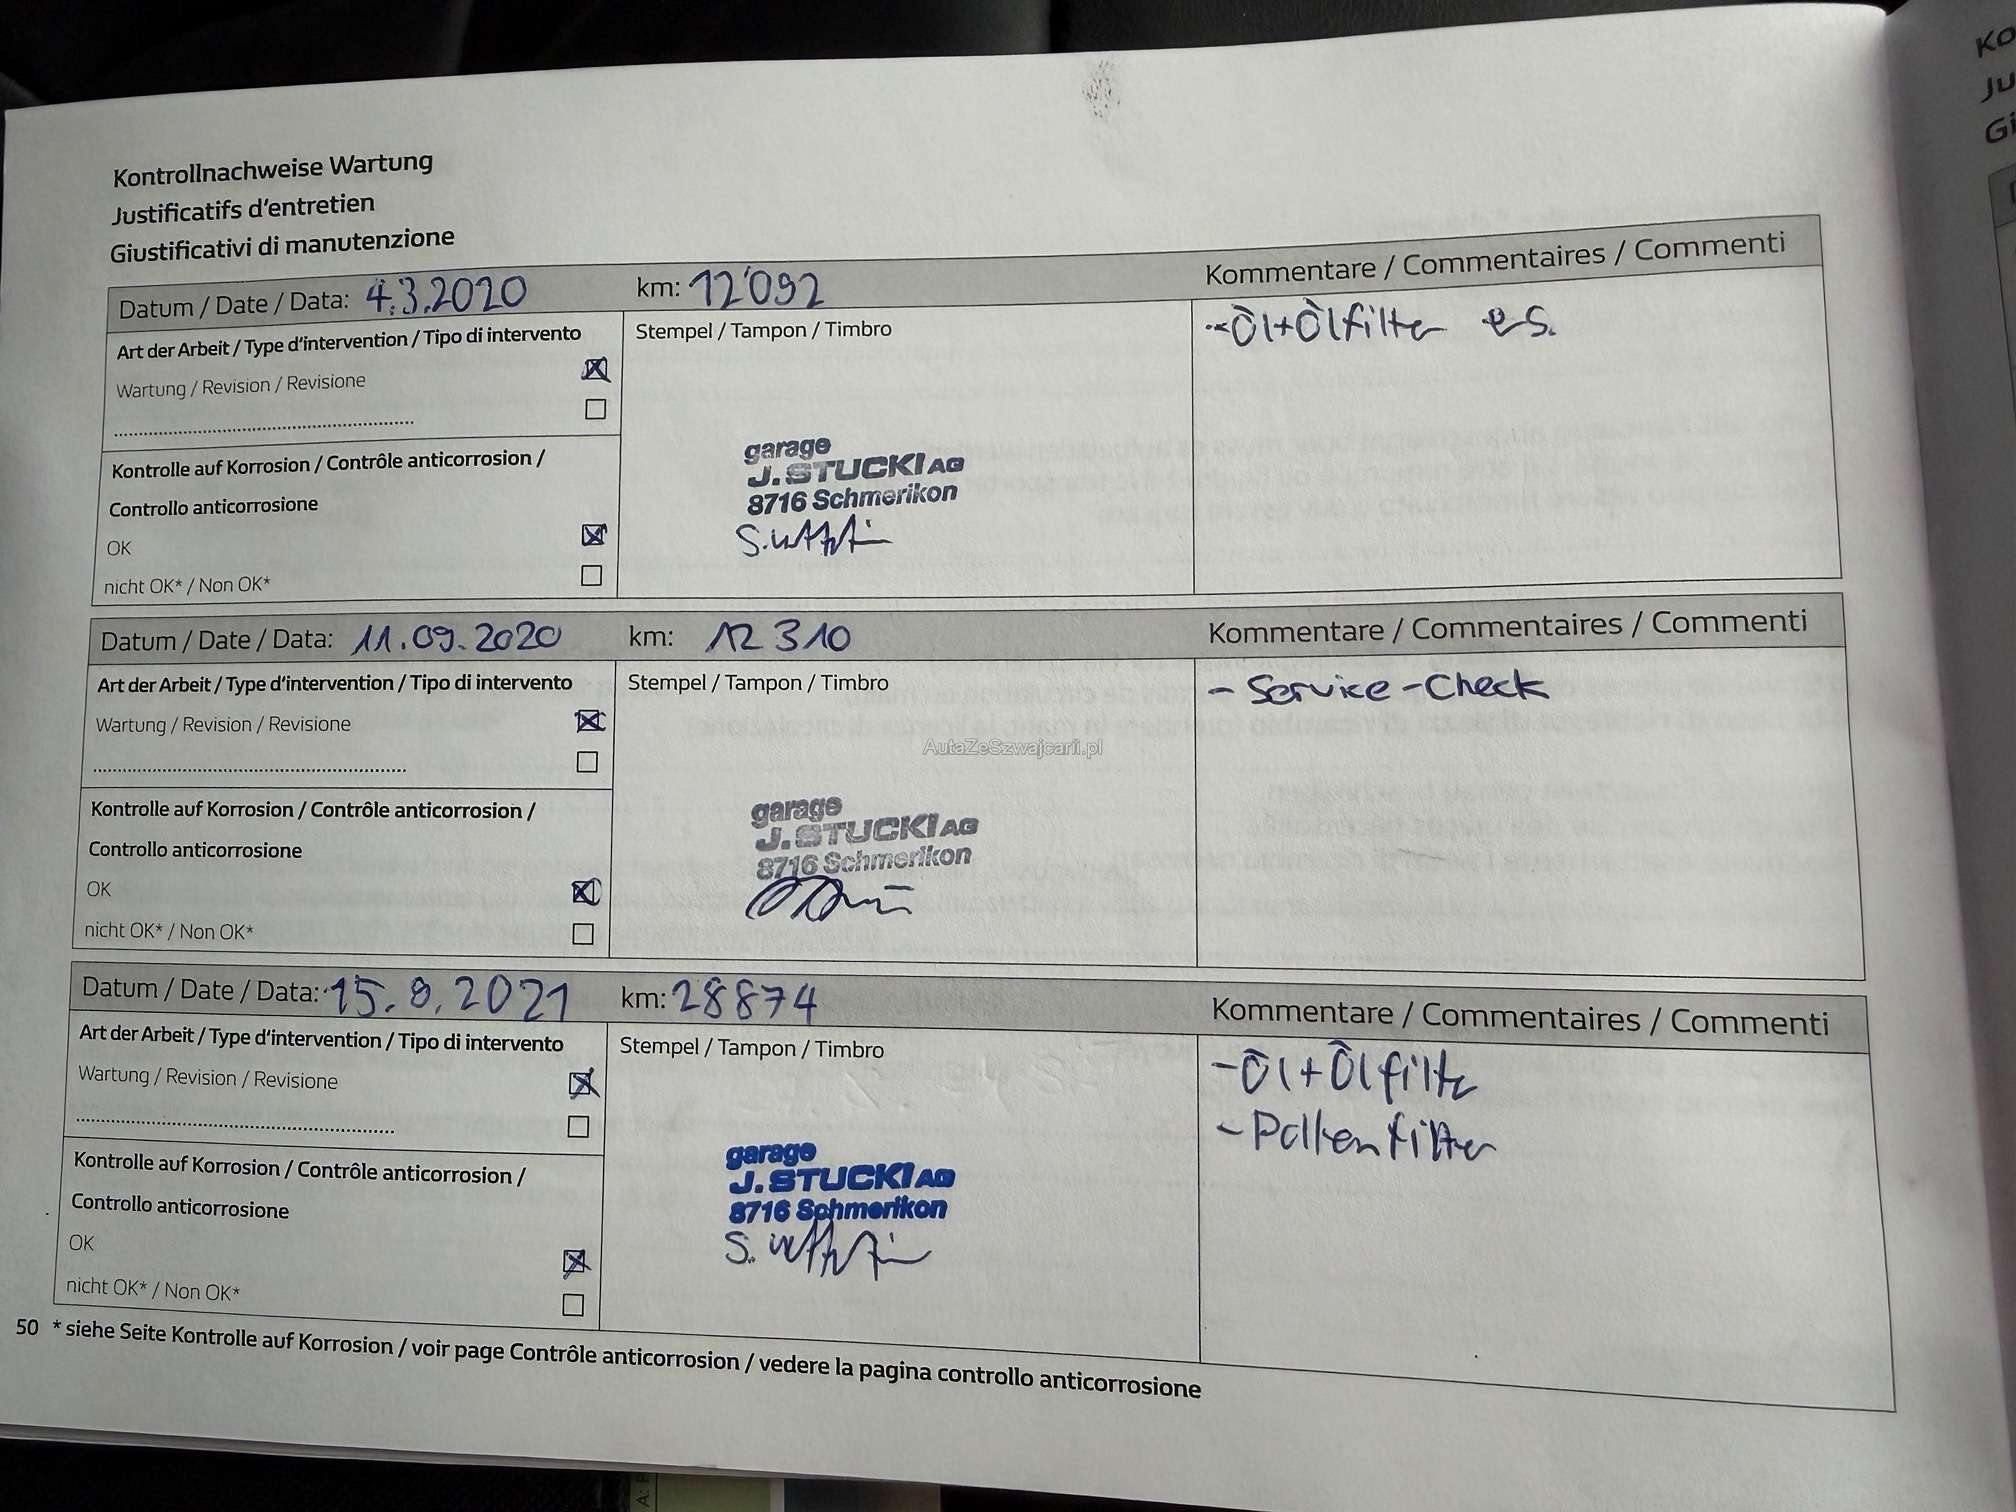 Kontrollnachweise Wartung
Justificatifs d'entretien
Giustificativi di manutenzione
Datum / Date / Data: 4.3.2020 km: 12'092 Kommentare / Commentaires / Commenti
Art der Arbeit / Type d'intervention / Tipo di intervento
Stempel / Tampon / Timbro
- Öl+Ölfilter es.
Wartung / Revision / Revisione
Kontrolle auf Korrosion / Contrôle anticorrosion /
Controllo anticorrosione
OK
nicht OK* / Non OK*
garage
J.STUCKI AG
8716 Schmerikon
Datum / Date / Data: 11.09.2020 km: 12 310 Kommentare / Commentaires / Commenti
Art der Arbeit / Type d'intervention / Tipo di intervento
Stempel / Tampon / Timbro
- Service-Check
Wartung / Revision / Revisione
AutaZeSzwajcarii.pl
Kontrolle auf Korrosion / Contrôle anticorrosion /
Controllo anticorrosione
OK
nicht OK* / Non OK*
garage
J.STUCKI AG
8716 Schmerikon
Datum / Date / Data: 15.9.2021 km: 28874 Kommentare / Commentaires / Commenti
Art der Arbeit / Type d'intervention / Tipo di intervento
Stempel / Tampon / Timbro
- Öl+Ölfilter
- Pollenfilter
Wartung / Revision / Revisione
Kontrolle auf Korrosion / Contrôle anticorrosion /
Controllo anticorrosione
OK
nicht OK* / Non OK*
garage
J.STUCKI AG
8716 Schmerikon
50 * siehe Seite Kontrolle auf Korrosion / voir page Contrôle anticorrosion / vedere la pagina controllo anticorrosione
Ko
Ju
Gi